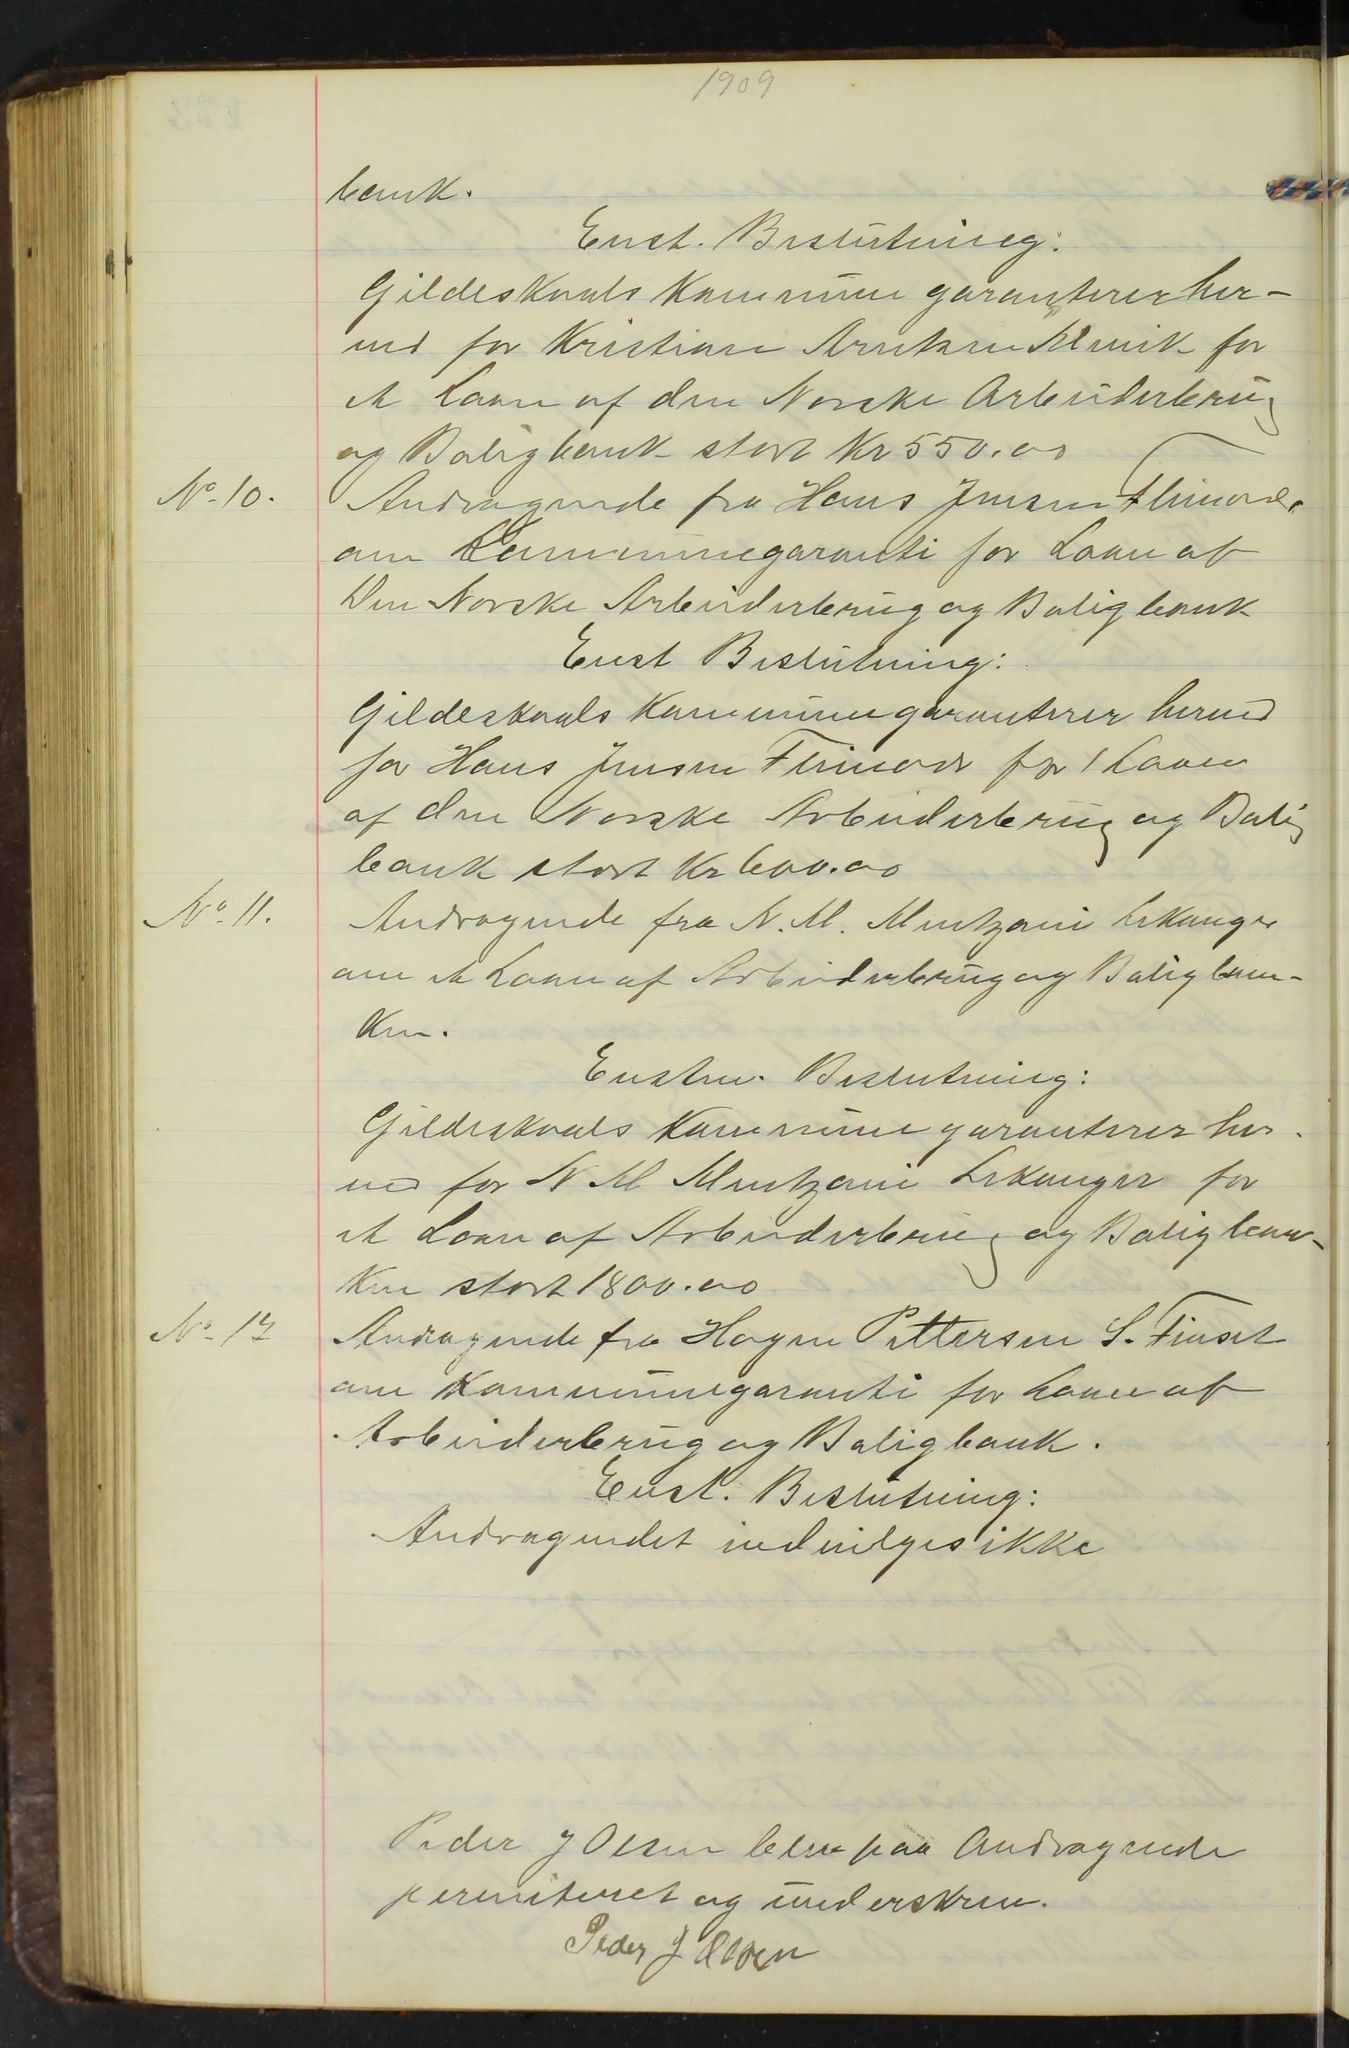 1909
bank.
Enst. Beslutning:
Gildeskaals Kommune garanterer her-
ved for Kristian Arntsen for
et Laan af den Norske Arbeiderbrug
og Boligbank stort Kr 550.00
No. 10. Andragende fra Hans Jensen
om Kommunegaranti for Laan af
Den Norske Arbeiderbrug og Boligbank
Enst Beslutning:
Gildeskaals Kommune garanterer herved
for Hans Jensen for 1 Laan
af den Norske Arbeiderbrug og Bolig
bank stort Kr 600.00
No. 11. Andragende fra N. M. Mentzoni Lekanger
om et Laan af Arbeiderbrug og Boligban-
ken.
Enstem. Beslutning:
Gildeskaals Kommune garanterer her-
ved for N M Mentzoni Lekanger for
et Laan af Arbeiderbrug og Boligban-
ken stort 1800.00
No. 12 Andragende fra Hagen Pettersen S. Finset
om Kommunegaranti for Laan af
Arbeiderbrug og Boligbank.
Enst. Beslutning:
Andragendet indvilges ikke
Peder J Olsen blev paa Andragende
permiteret og underskrev.
Peder J Olsen